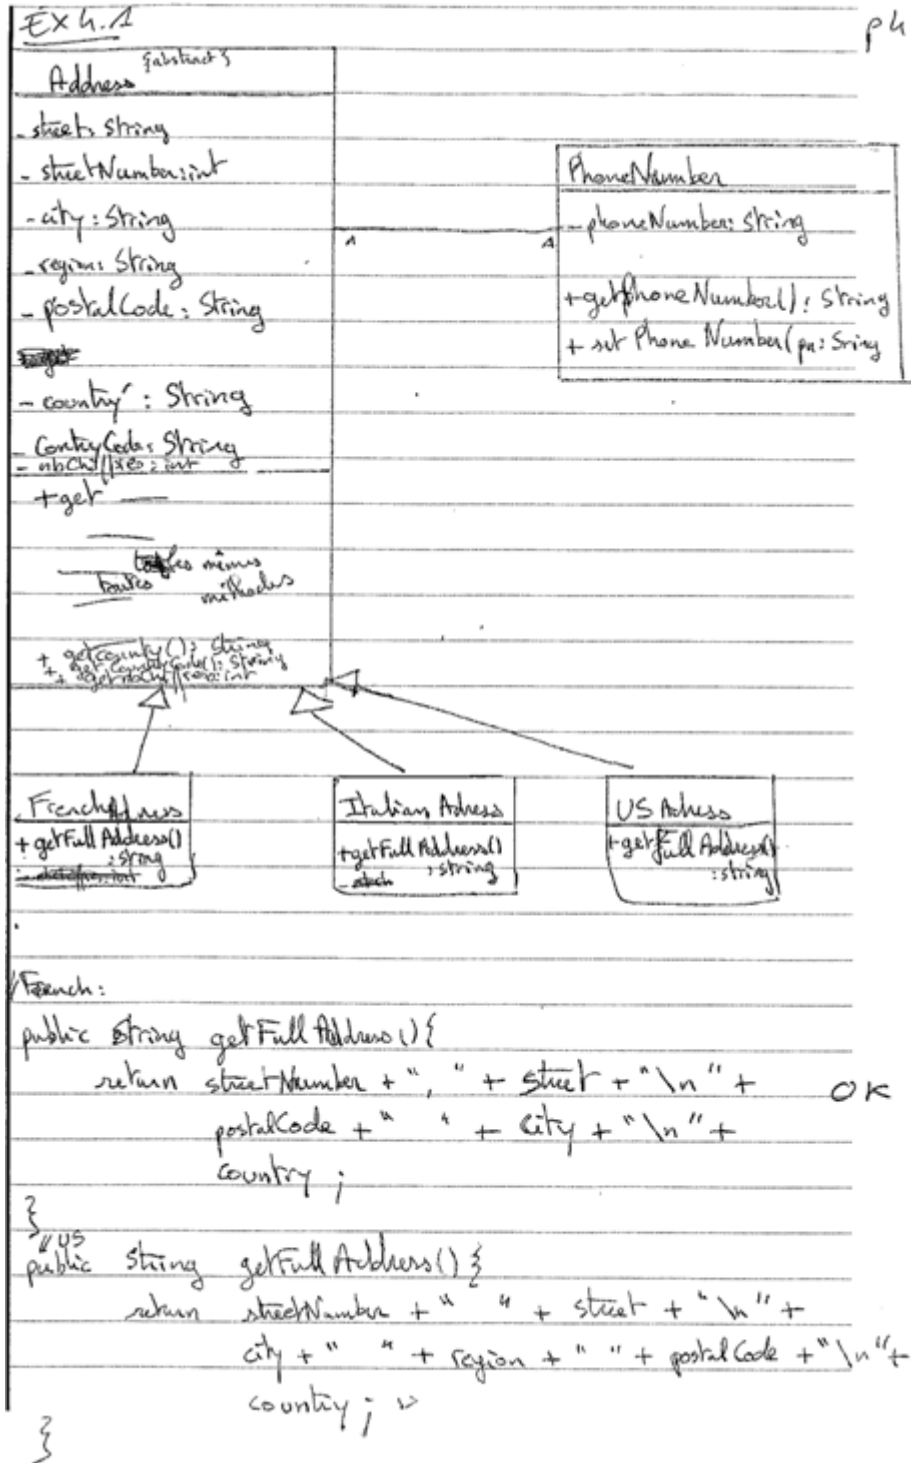 Ex 4.1
p4
{abstract}
Address
- street: String
- streetNumber: int
- city: String
- region: String
- postalCode: String
- country: String
- ContryCode: String
- nbChiffres: int
+ get
toutes mêmes
méthodes
+ getCountry(): String
+ getCountryCode(): String
+ getnbChiffres: int
PhoneNumber
- phoneNumber: String
+ getPhoneNumber(): String
+ set Phone Number(pn: Sring
1 1
FrenchAdress
+ getFull Address()
: string
Italian Adress
+ getFull Address()
: string
US Adress
+ getFull Address()
: string
// French:
public String getFull Address() {
return streetNumber + ", " + street + "\n" +
OK
postalCode + " " + City + "\n" +
country ;
}
// US
public String getFull Address() {
return streetNumber + " " + street + "\n" +
city + " " + region + " " + postalCode + "\n" +
country ;
}